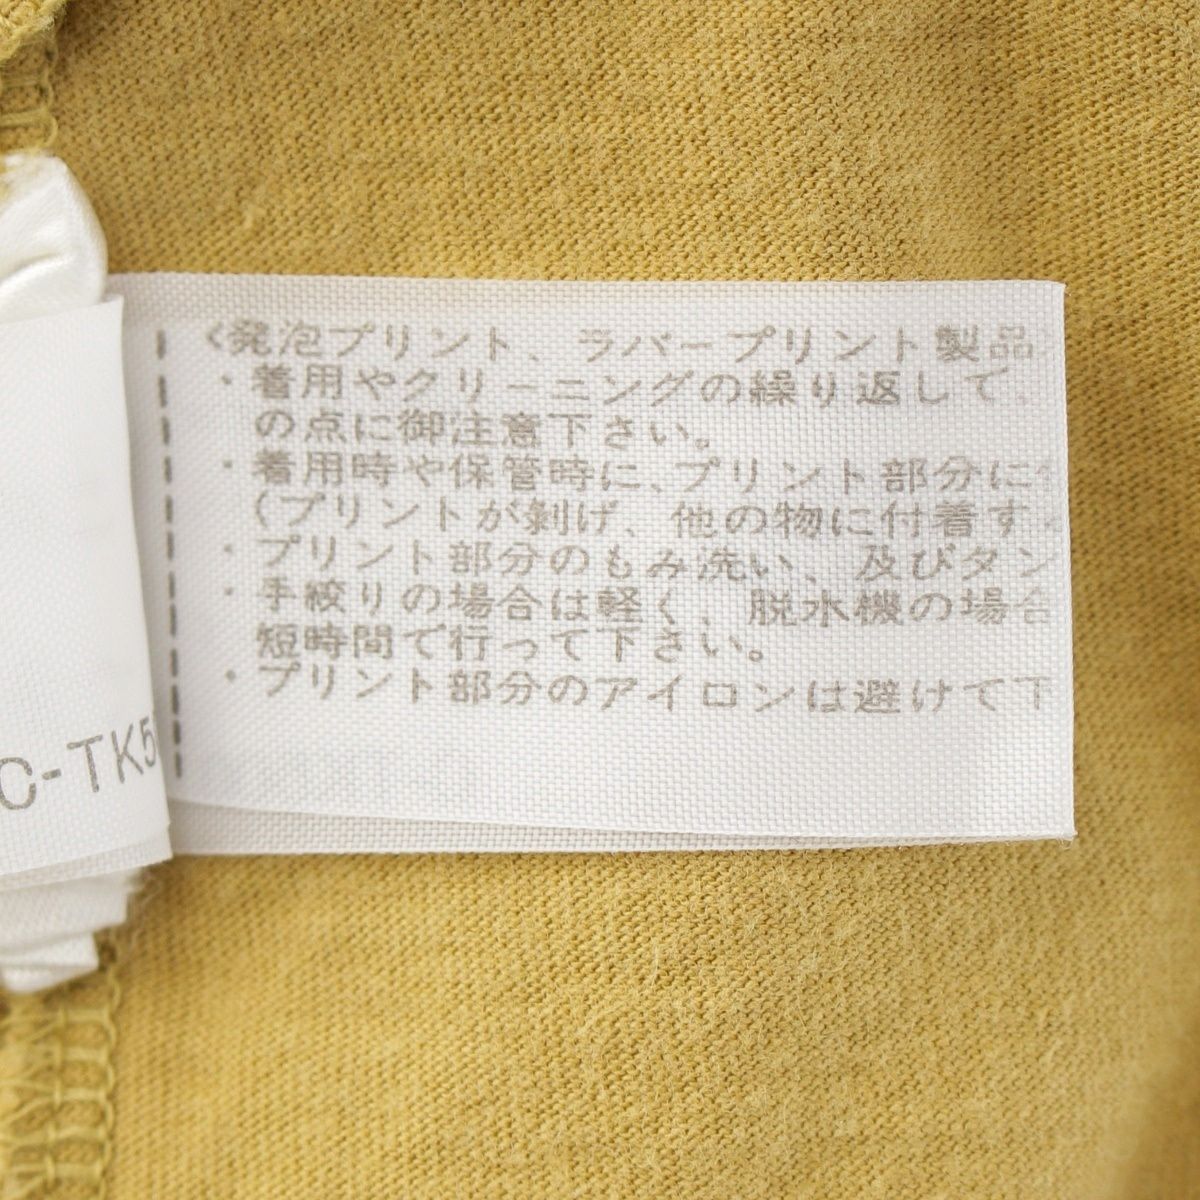 〈発泡プリント、ラバープリント製品
・着用やクリーニングの繰り返しで、
の点に御注意下さい。
・着用時や保管時に、プリント部分に
(プリントが剥げ、他の物に付着す
・プリント部分のもみ洗い、及びタン
・手絞りの場合は軽く、脱水機の場合
短時間で行って下さい。
・プリント部分のアイロンは避けて下
C-TK5